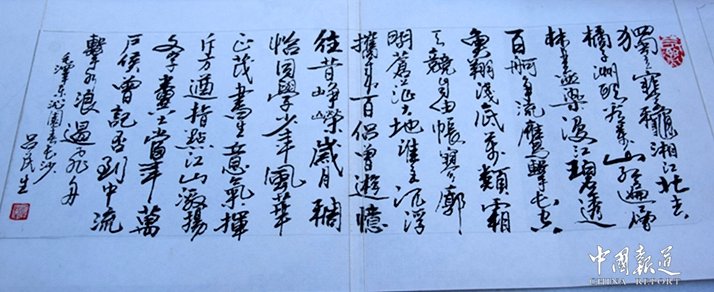 獨立寒龝湘江北去
橘子洲頭看萬山紅遍層
林盡染漫江碧透
百舸爭流鷹擊長空
魚翔淺底萬類霜
天競自由悵寥廓
問蒼茫大地誰主沉浮
攜來百侶曾遊憶
往昔崢嶸歲月稠
恰同學少年風華
正茂書生意氣揮
斥方遒指點江山激揚
文字糞土當年萬
戶侯曾記否到中流
擊水浪遏飛舟
毛澤東沁園春長沙
呂民生
中國報道
CHINA REPORT